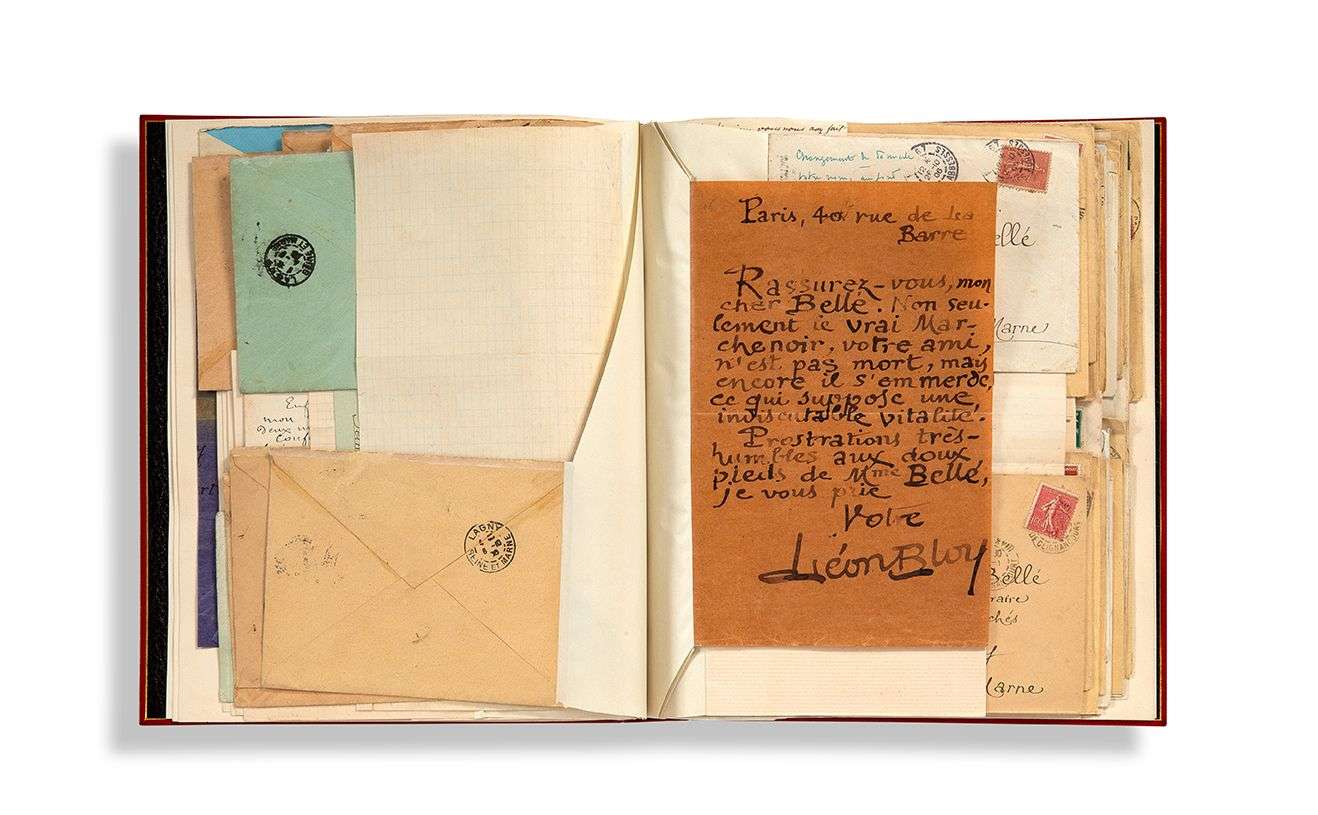 Euf
mon
Deux
Conf
LAGNY
SEINE ET MARNE
vous nous auf fait
Changement de Domicile
Paris, 40 rue de la
Barre
Rassurez-vous, mon
cher Bellé. Non seu-
lement le vrai Mar-
chenoir, votre ami,
n'est pas mort, mais
encore il s'emmerde,
ce qui suppose une
indiscutable vitalité.
Prostrations très-
humbles aux doux
pieds de Mme Bellé,
je vous prie
Votre
Léon Bloy
ellé
Marne
Bellé
raire
chés
Marne